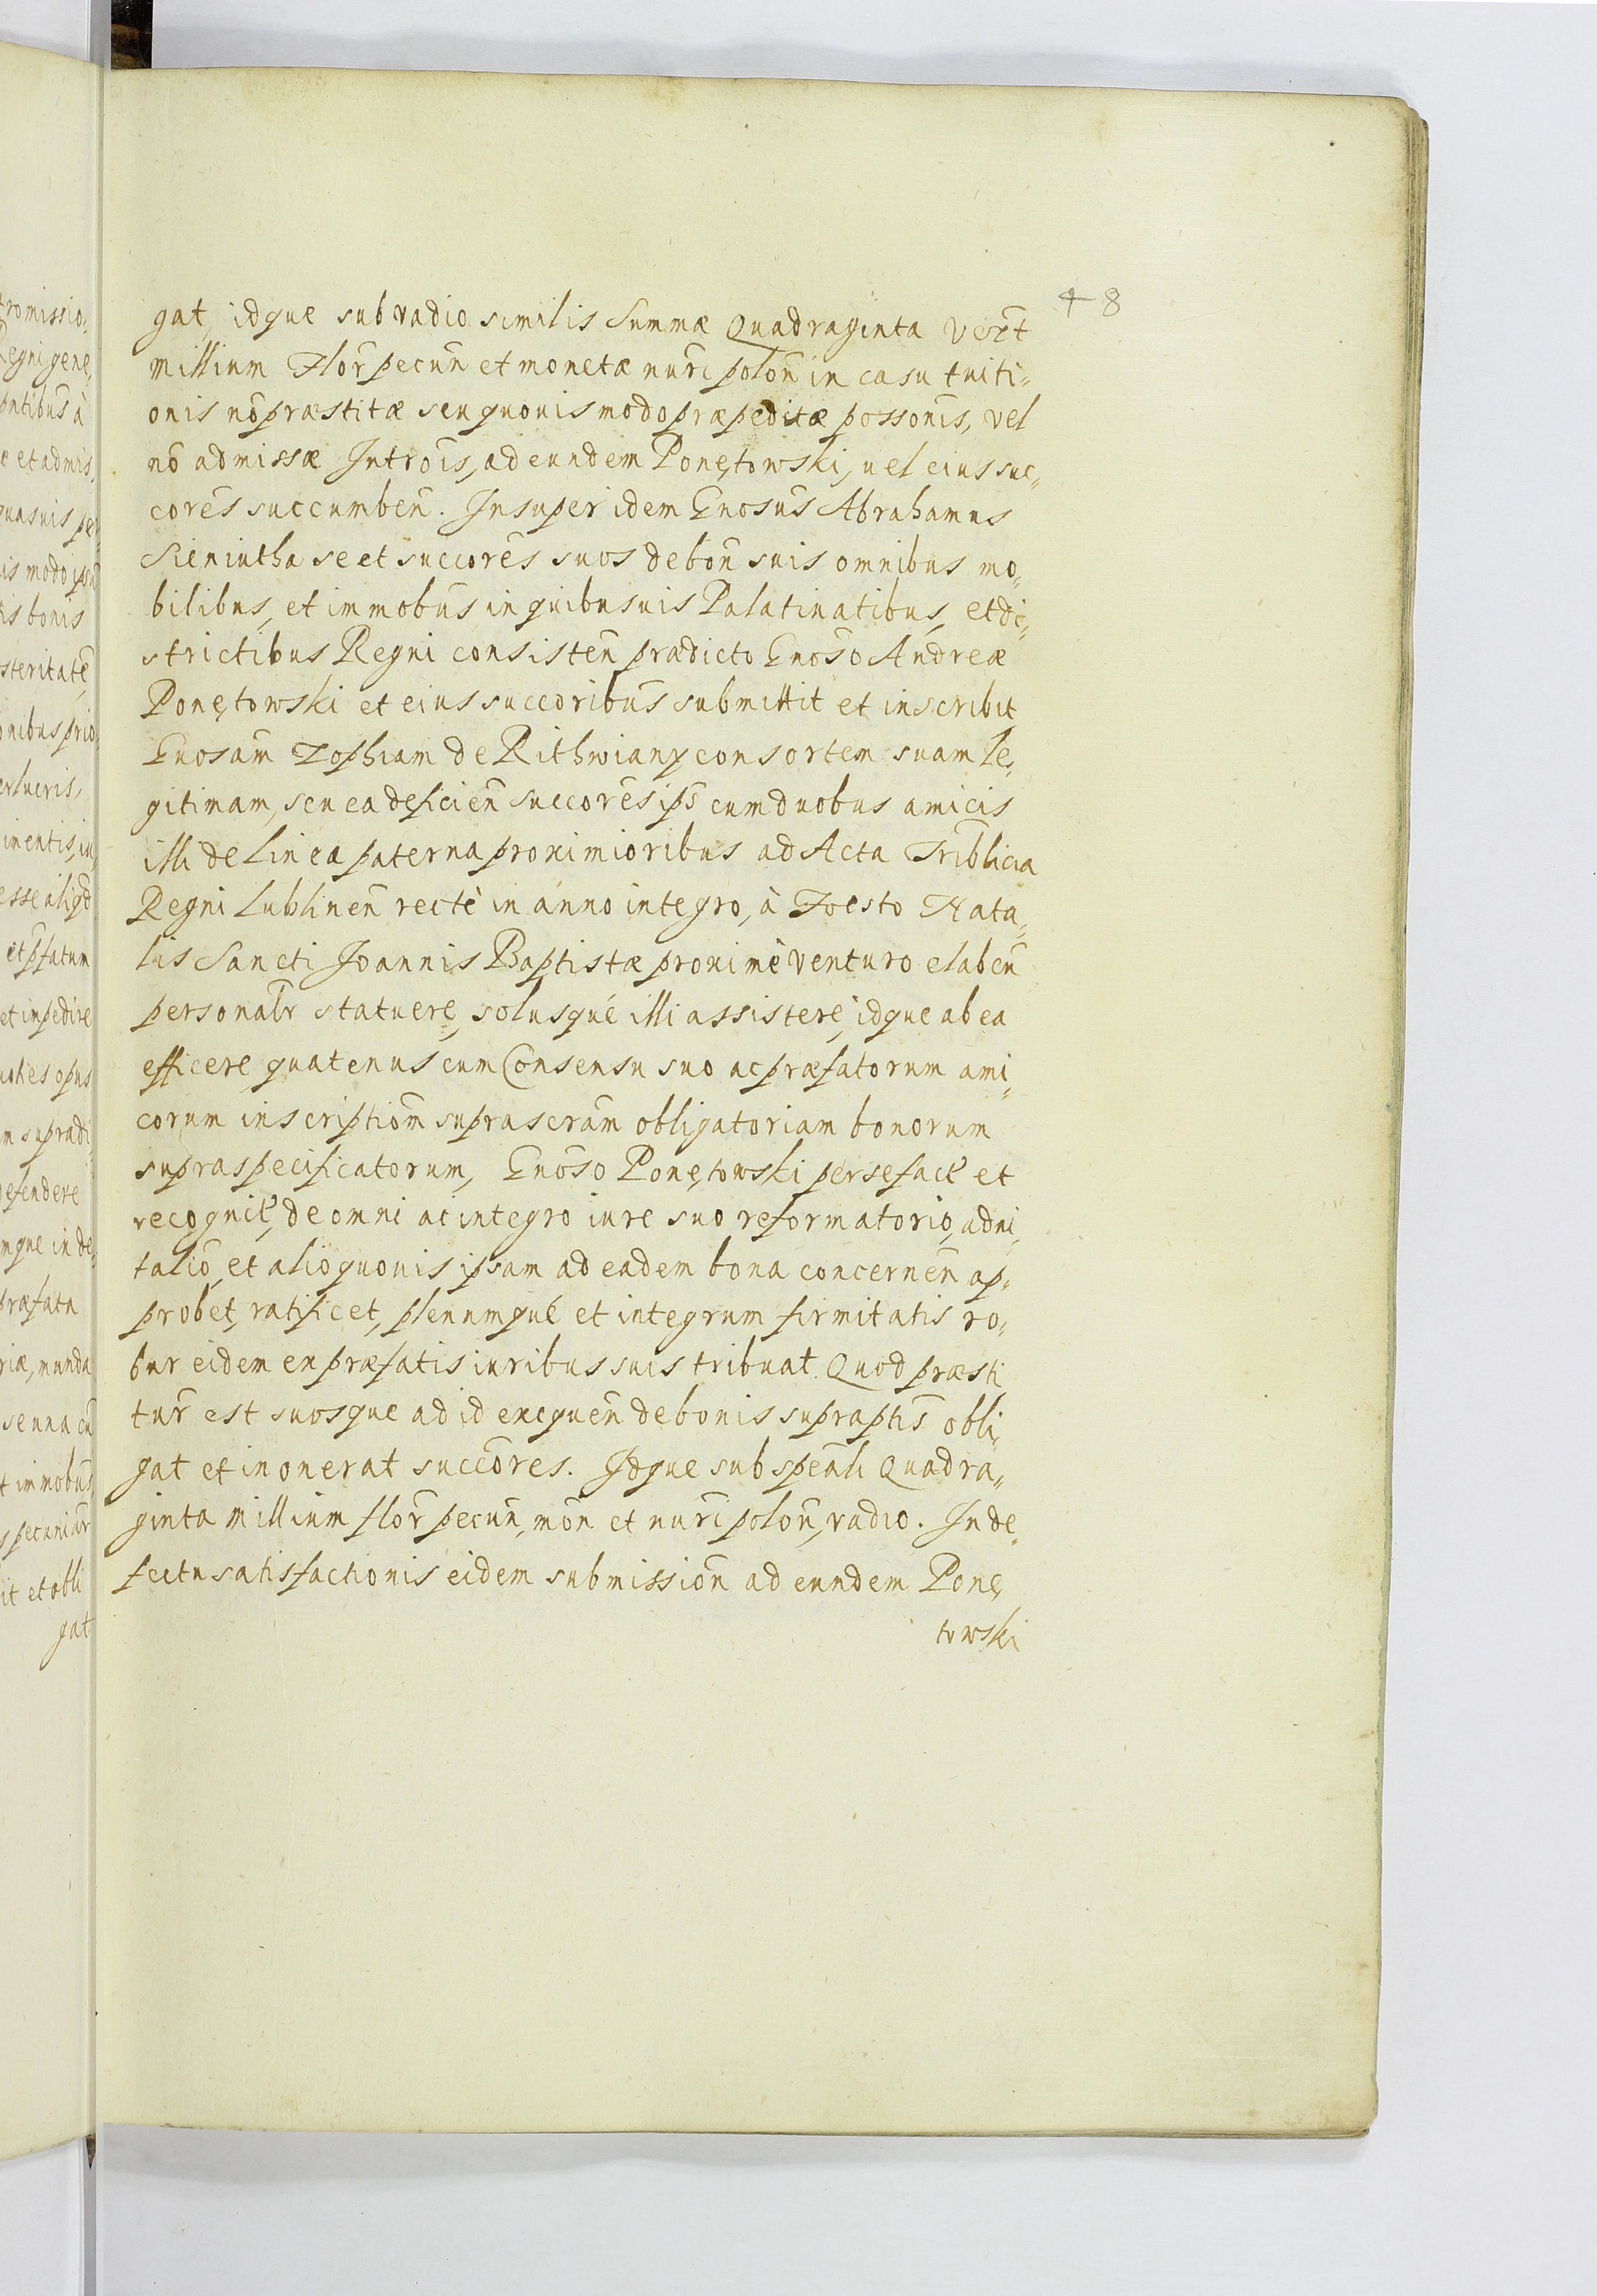 48
gat, idque sub vadio similis Summæ Quadraginta
millium Flor̃ pecuñ et monetæ nur̃i poloñ in casu tuiti=
onis nõ præstitæ seu quouis modo præpeditæ possonĩs, vel
nõ admissæ Introĩs, ad eundem Ponętowski, uel eius suc=
corẽs succumbeñ. Insuper idem Gnosũs Abrahamus
Sieniutha se et succorẽs suos de boñ suis omnibus mo=
bilibus, et immobũs in quibusuis Palatinatibus, et di=
strictibus Regni consisteñ prædicto Gnosõ Andreæ
Ponętowski et eius succoribũs submittit et inscribit
Gnosam̃ Zophiam de Rithwiany consortem suam le=
gitimam, seu ea deficieñ succorẽs ips̃ cum duobus amicis
illi de linea paterna proximioribus ad Acta Trib̃licia
Regni Lublineñ rectè in anno integro, à Foesto Nata=
lis Sancti Joannis Baptistæ proximè venturo elabeñ
personalr̃ statuere, solusqué illi assistere, idque ab ea
efficere quatenus cum Consensu suo ac præfatorum ami=
corum inscriptiom̃ suprascram̃ obligatoriam bonorum
supraspecificatorum, Gnosõ Ponętowski per se fact̃ et
recognit̃, de omni ac integro iure suo reformatorio, adui=
talic̃o, et alio quouis ipsam ad eadem bona concerneñ ap=
probet, ratificet, plenumqué et integrum firmitatis ro=
bur eidem ex præfatis iuribus suis tribuat. Quod præsti
tur̃ est suosque ad id exequeñ de bonis supraptis̃ obli=
gat et inonerat succõres. Idque sub speãli Quadra=
ginta millium flor̃ pecuñ, moñ et nur̃i poloñ, vadio. In de=
fectu satisfactionis eidem submissioñ ad eundem Ponę
towski